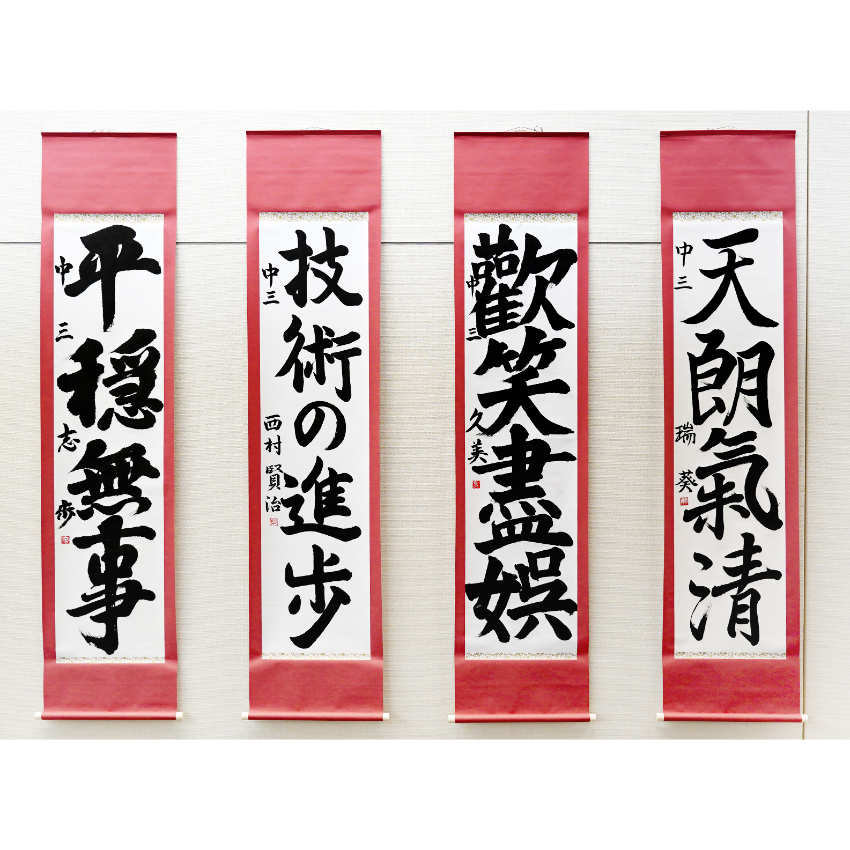 天朗氣清
中三 瑞葵
歡笑盡娯
中三 久美
技術の進歩
中三 西村賢治
平穏無事
中三 志歩